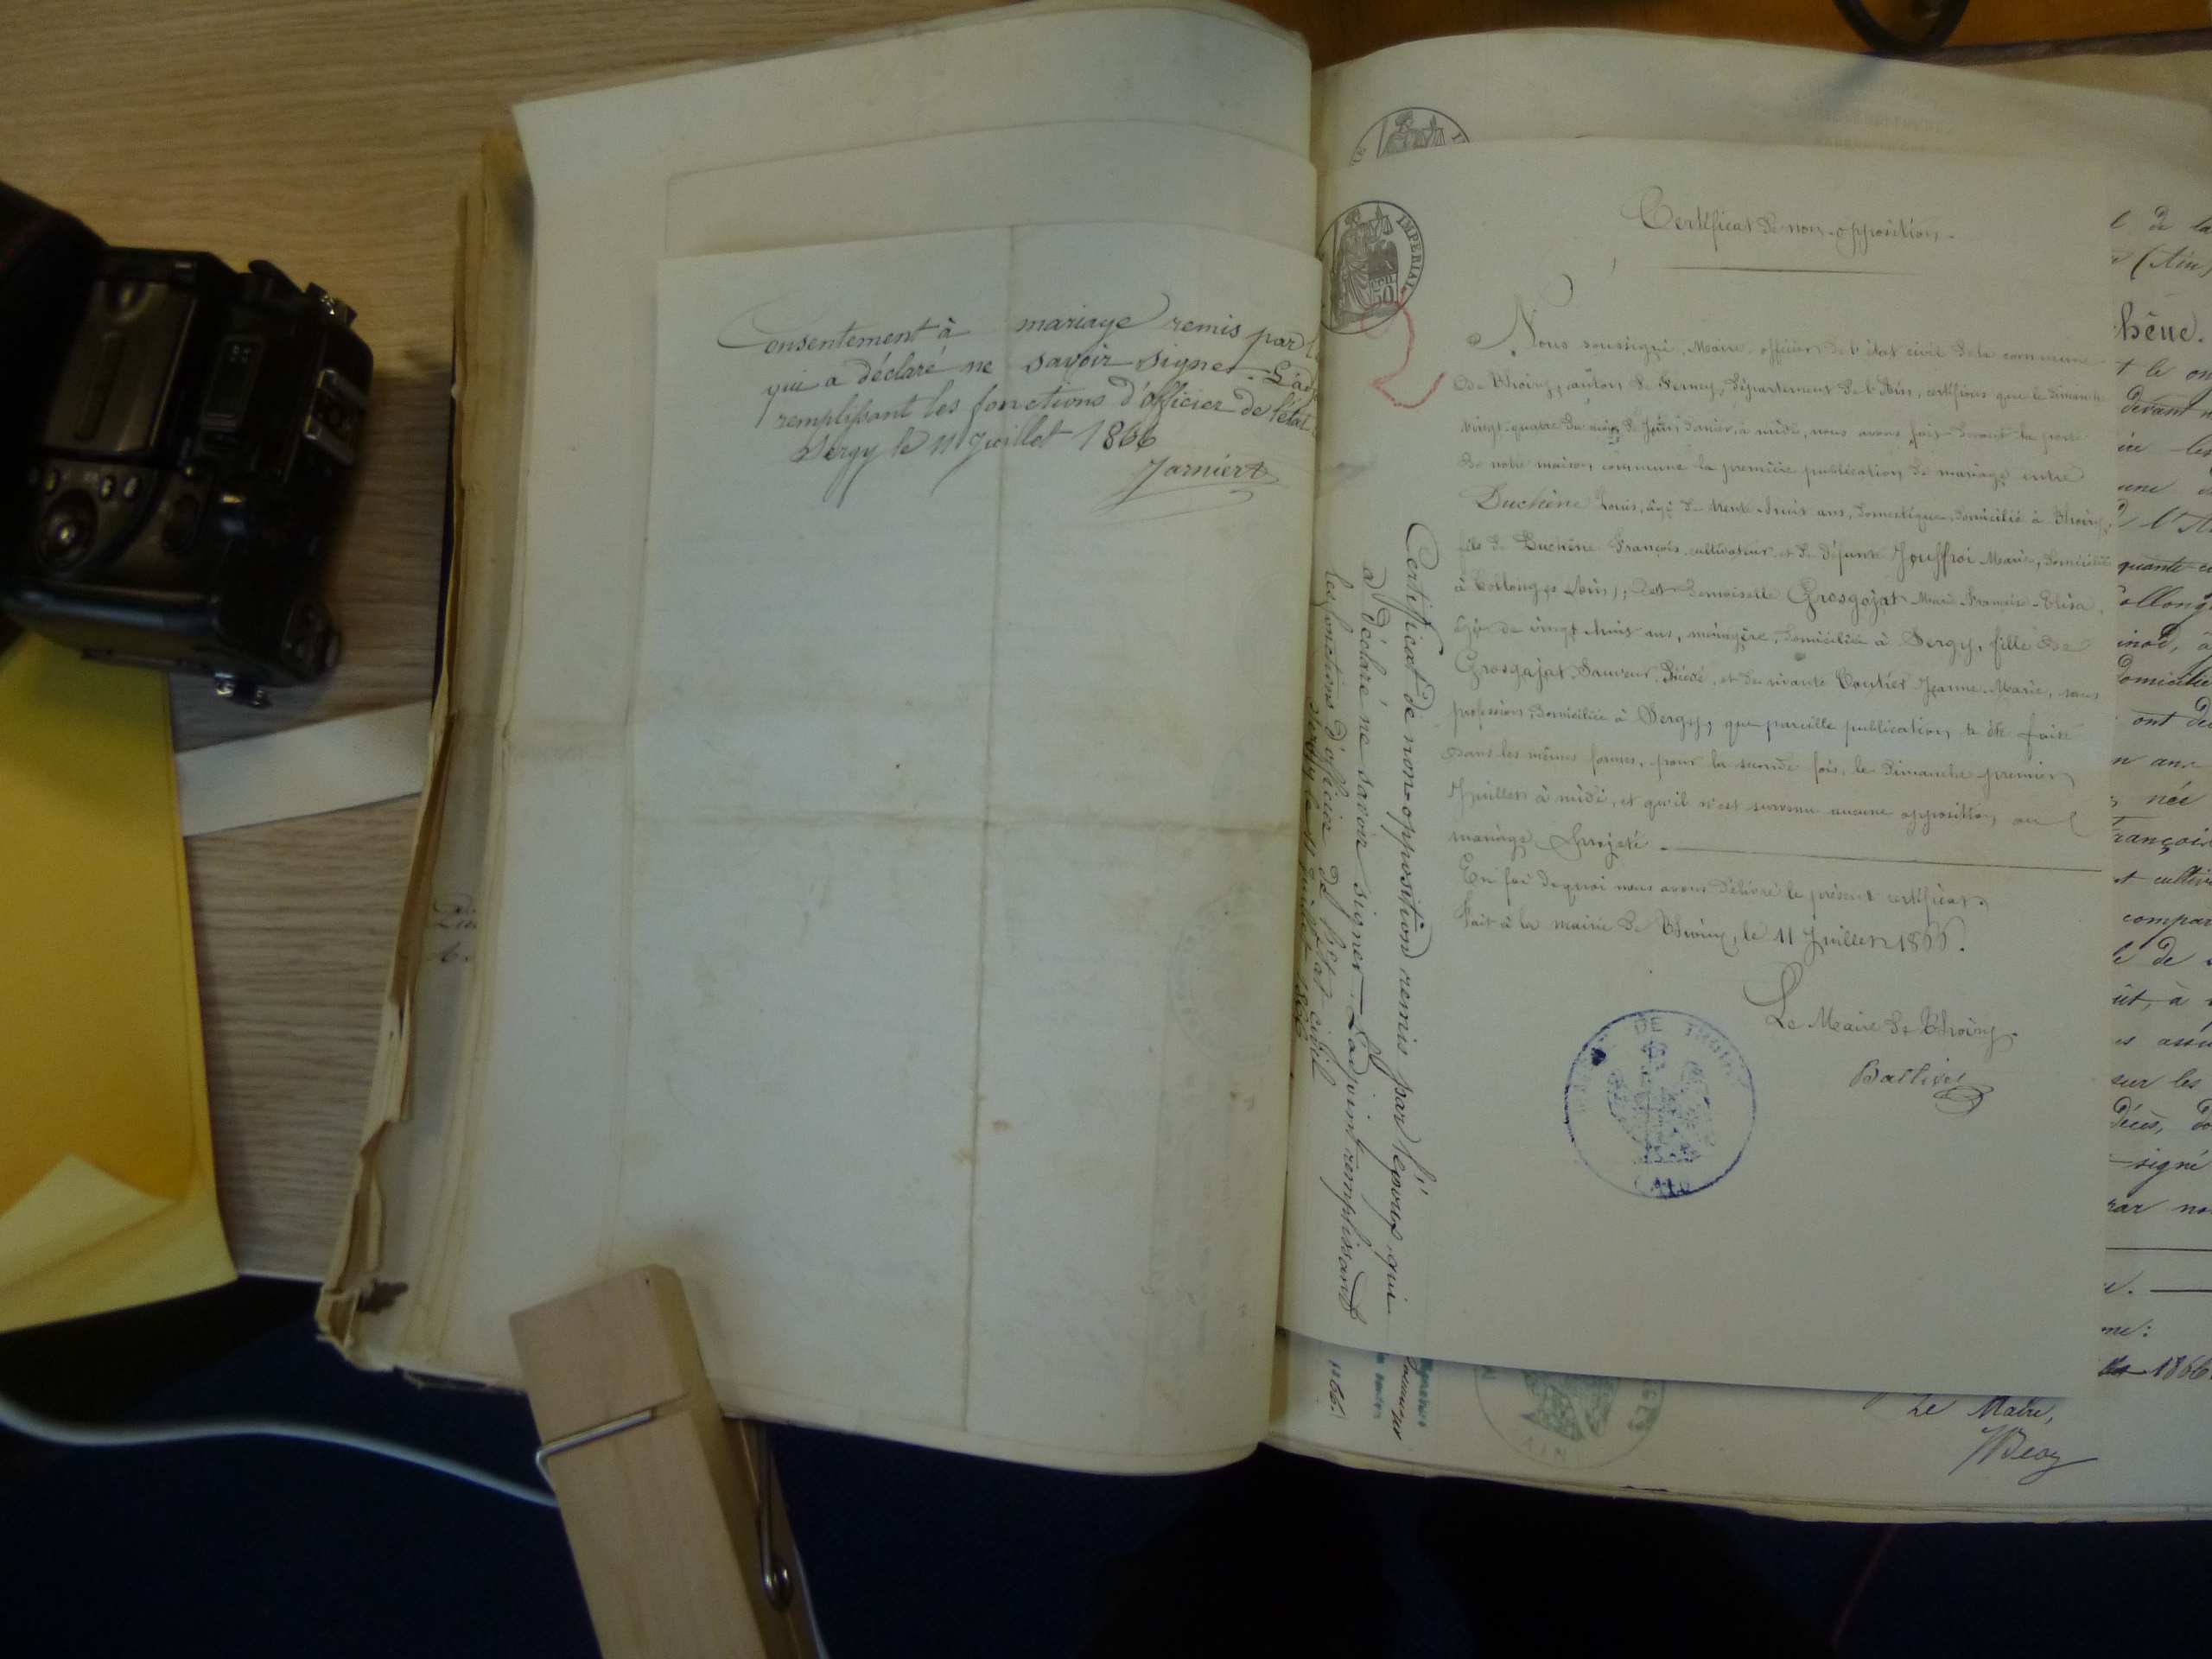 Consentement à mariage remis par
qui a déclaré ne savoir signer. L'ad
remplissant les fonctions d'officier de l'état
Sergy le 11 Juillet 1866
Jarniert
IMPERIAL
50
Certificat de non-opposition.
Nous soussigné, Maire, officier de l'état civil de la commune
de Thoiry, canton de Ferney, département de l'Ain, certifions que le dimanche
vingt-quatre du mois de Juin dernier, à midi, nous avons fait devant la porte
de notre maison commune la première publication de mariage entre
Duchêne Louis, âgé de trente trois ans, domestique, domicilié à Thoiry,
fils de Duchêne François cultivateur et de défunte Jouffroi Marie, domicilié
à Collonges (Ain), et demoiselle Grosgojat Marie Françoise Elisa,
âgée de vingt trois ans, ménagère, domiciliée à Sergy, fille de
Grosgojat Sauveur, décédé, et de vivante Boutier Jeanne-Marie, sans
profession, domiciliée à Sergy, que pareille publication a été faite
dans les mêmes formes, pour la seconde fois, le dimanche premier
Juillet à midi, et qu'il n'est survenu aucune opposition au
mariage projeté.
En foi de quoi nous avons délivré le présent certificat
Fait à la mairie de Thoiry, le 11 Juillet 1866.
Le Maire de Thoiry.
DE THOIRY
(AIN)
Certificat de non-opposition remis par l'époux qui
a déclaré ne savoir signer. L'adjoint remplissant
les fonctions d'officier de l'état civil
Sergy le 11 juillet 1866
AIN
e de la
(Ain)
hêne.
t le on
devant n
les
une
quante-ci
ollong
domicilié
ont dé
n an
née
rançois
t cultiv
compar
le de
ût, à
s assu
sur les
décès, do
signé
par no
me:
1866
Le Maire,